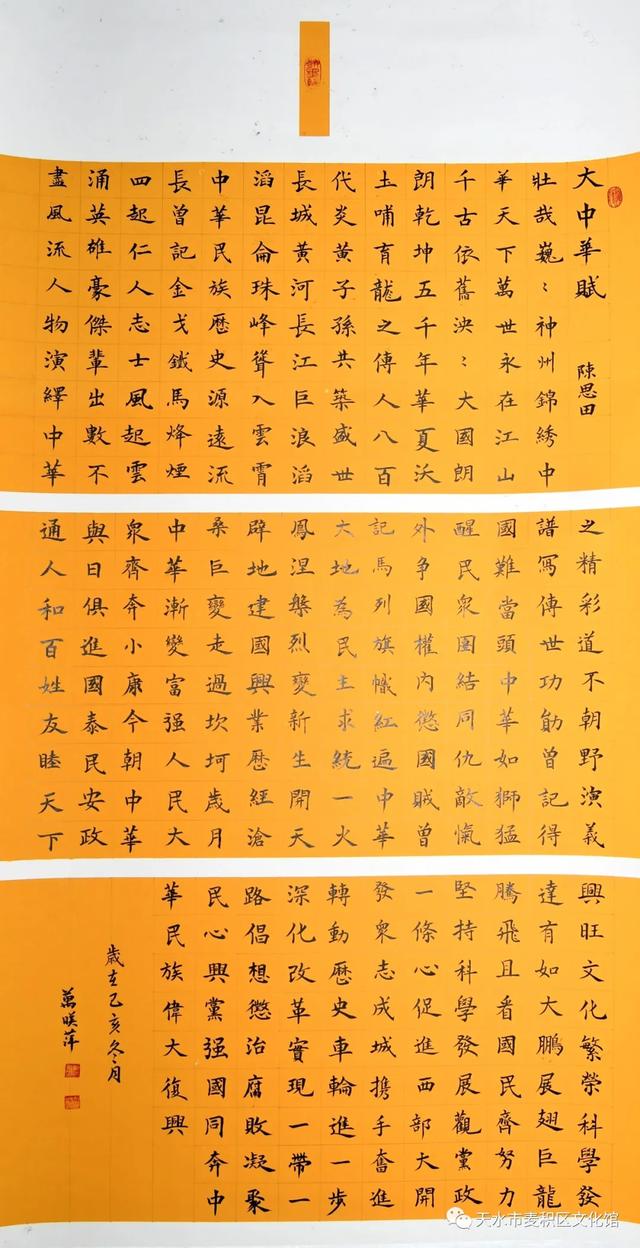 大中華賦 陳思田
壯哉巍〻神州錦綉中
華天下萬世永在江山
千古依舊泱〻大國朗
朗乾坤五千年華夏沃
土哺育龍之傳人八百
代炎黃子孫共築盛世
長城黃河長江巨浪滔
滔昆侖珠峰聳入雲霄
中華民族歷史源遠流
長曾記金戈鐵馬烽煙
四起仁人志士風起雲
涌英雄豪傑輩出數不
盡風流人物演繹中華
之精彩道不朝野演義
譜寫傳世功勛曾記得
國難當頭中華如獅猛
醒民衆團結同仇敵愾
外争國權內懲國賊曾
記馬列旗幟紅遍中華
大地為民主求統一火
鳳涅槃烈變新生開天
辟地建國興業歷經滄
桑巨變走過坎坷歲月
中華漸變富强人民大
衆齊奔小康今朝中華
與日俱進國泰民安政
通人和百姓友睦天下
興旺文化繁榮科學發
達有如大鵬展翅巨龍
騰飛且看國民齊努力
堅持科學發展觀黨政
一條心促進西部大開
發衆志成城携手奮進
轉動歷史車輪進一步
深化改革實現一帶一
路倡想懲治腐敗凝聚
民心興黨强國同奔中
華民族偉大復興
歲在乙亥冬月
萬暎萍
天水市麦积区文化馆